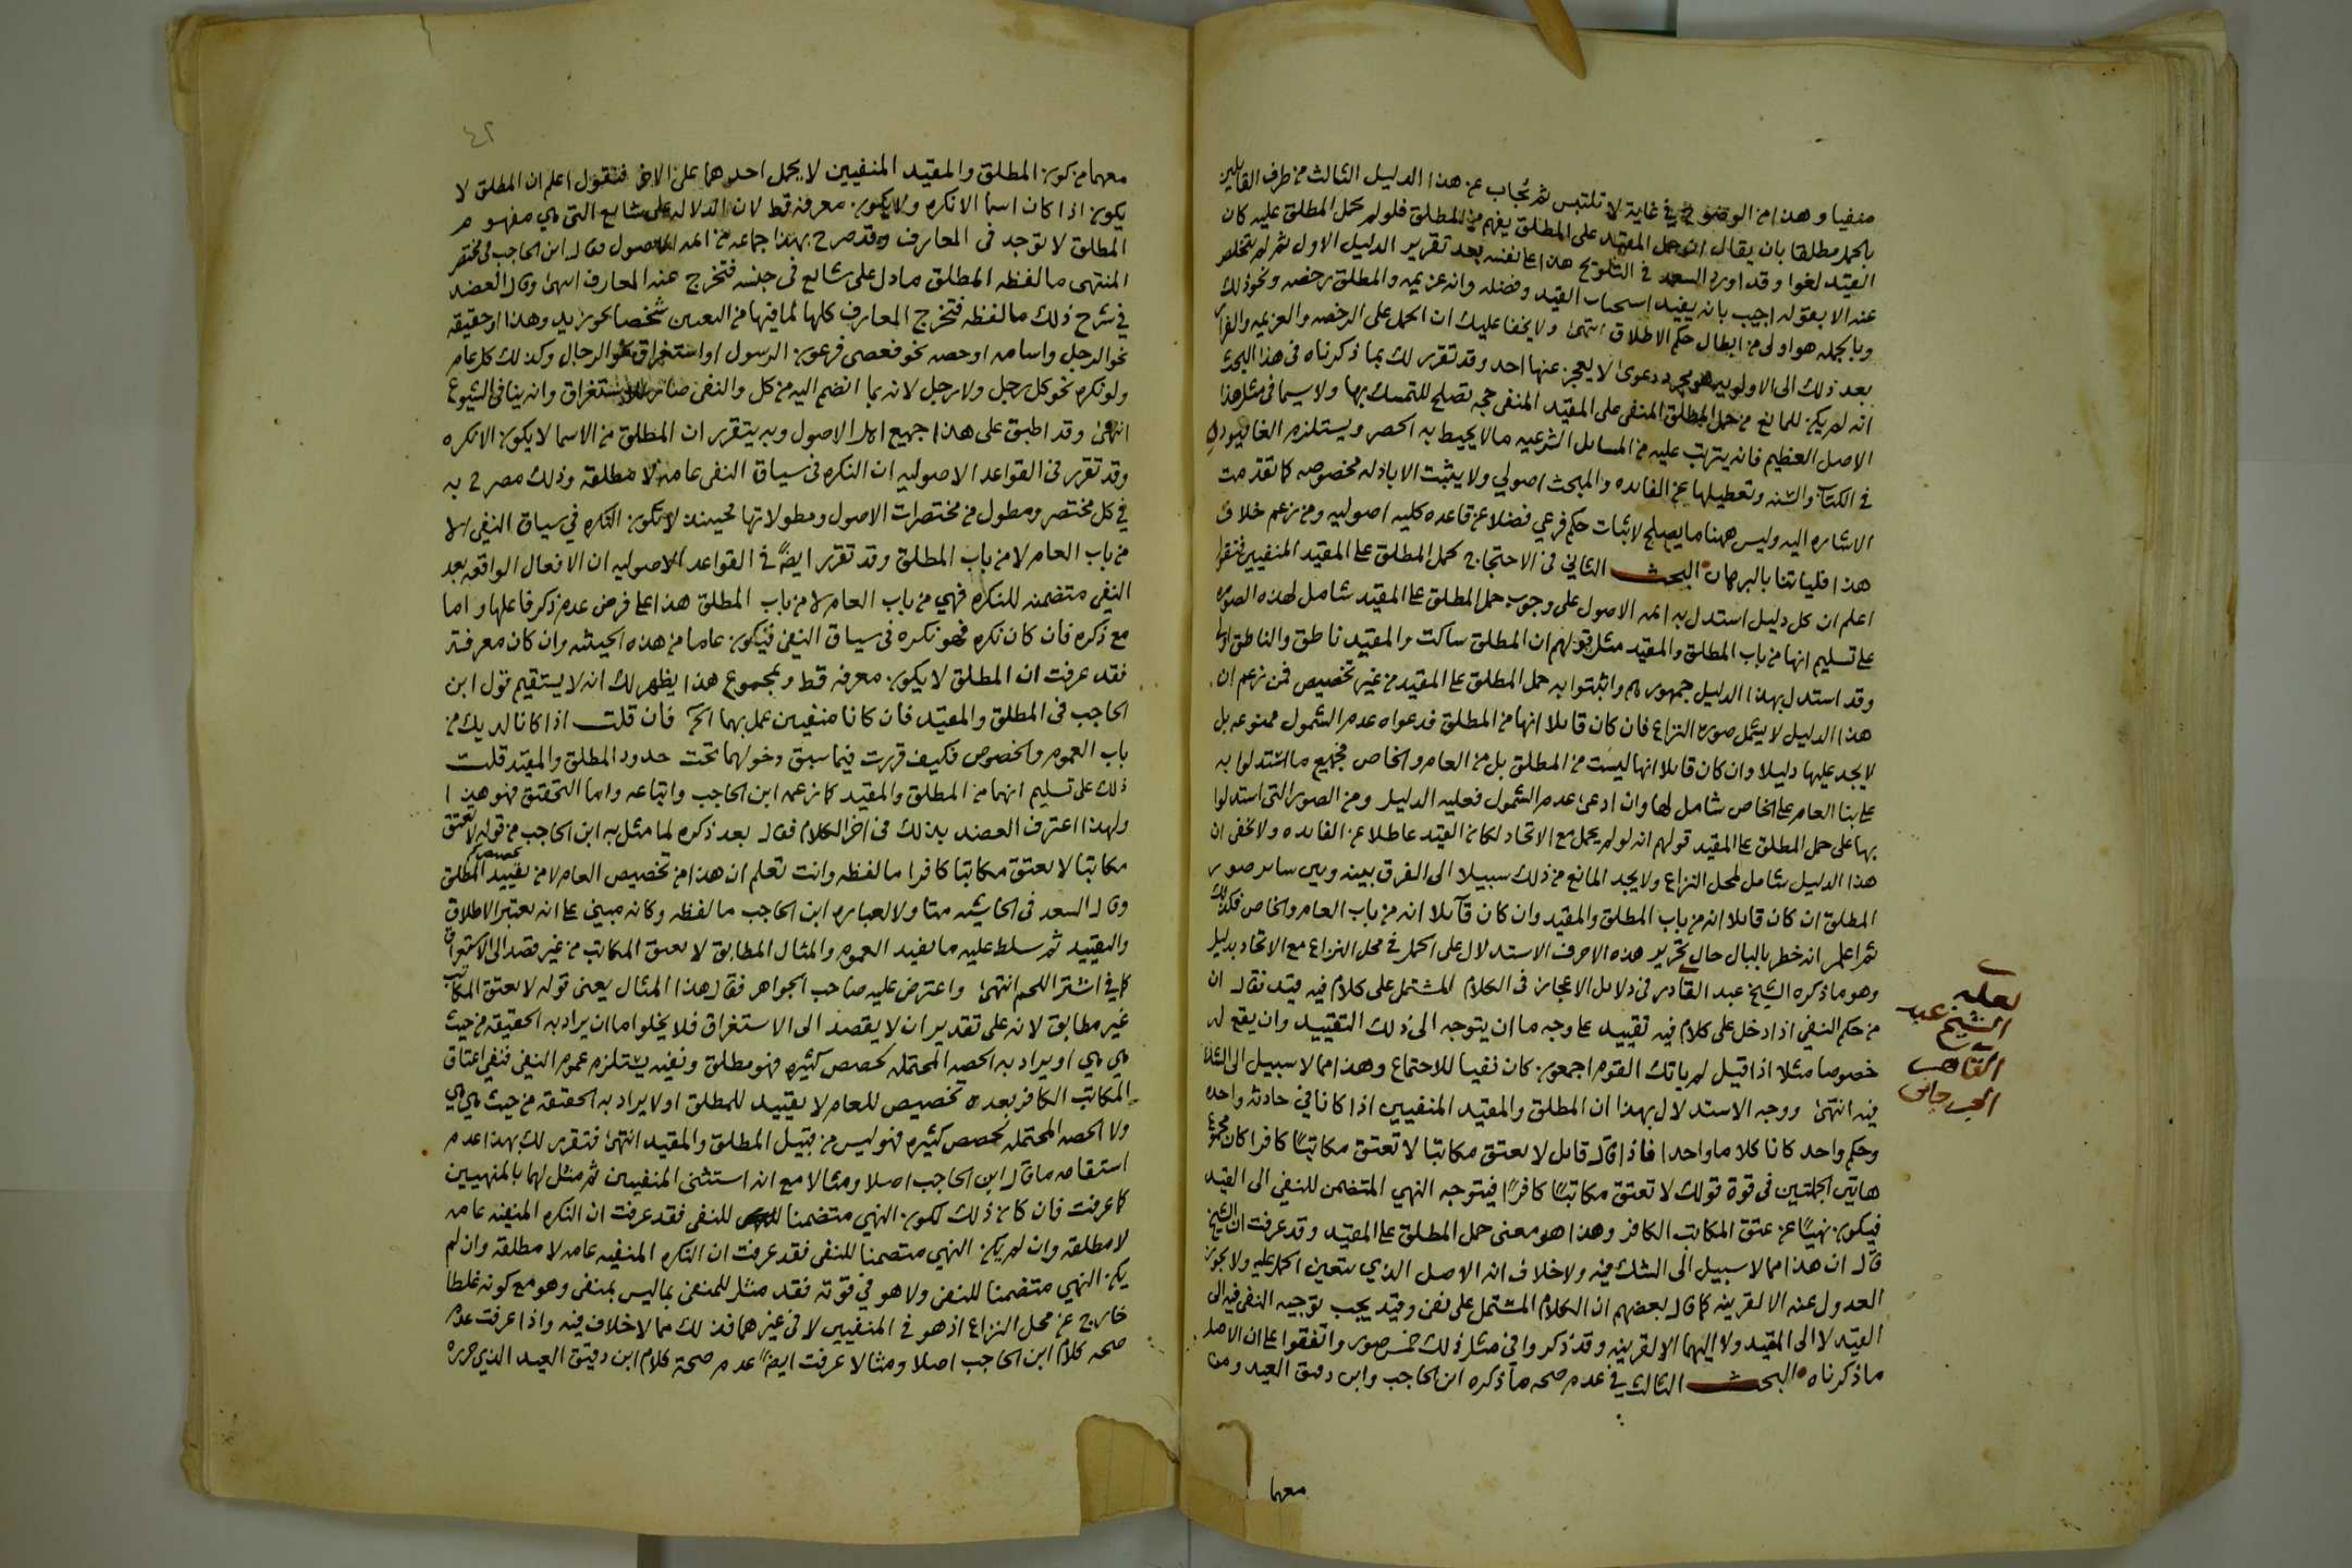 منفيا وهذا من الوضوح في غاية لا تلتبس ثم يجاب عن هذا الدليل الثالث من طرف القايلين
بالحمل مطلقا بان يقال ان حمل المقيد على المطلق يفهم من المطلق فلو لم يحمل المطلق عليه كان
القيد لغوا وقد اورد السعد في التلويح هذا على نفسه بعد تقرير الدليل الاول ثم لم يتخلص
عنه الا بقوله اجيب بانه يفيد استحباب القيد وفضله وانه عزيمه والمطلق رخصه ونحو ذلك
وبالجمله هو اولى من ابطال حكم الاطلاق انتهى ولا يخفا عليك ان الحمل على الرخصه والعزيمه والفرار
بعد ذلك الى الاولويه هو مجرد دعوى لا يعجز عنها احد وقد تقرر لك بما ذكرناه في هذا البحث
انه لم يكن للمانع من حمل المطلق المنفي على المقيد المنفي حجه تصلح للتمسك بها ولا سيما في مثل هذا
الاصل العظيم فانه يترتب عليه من المسايل الشرعيه مالا يحيط به الحصر ويستلزم الغا قيود
في الكتاب والسنه وتعطيلها عن الفايده والمبحث اصولي ولا يثبت الا بادله مخصوصه كما تقدمت
الاشاره اليه وليس ههنا ما يصلح لاثبات حكم فرعي فضلا عن قاعده كليه اصوليه ومن زعم خلاف
هذا فلياتنا بالبرهان البحث الثاني في الاحتجاج لحمل المطلق على المقيد المنفيين فنقول
اعلم ان كل دليل استدل به ايمه الاصول على وجوب حمل المطلق على المقيد شامل لهذه الصوره
على تسليم انها من باب المطلق والمقيد مثل قولهم ان المطلق ساكت والمقيد ناطق والناطق اولى
وقد استدل بهذا الدليل جمهورهم واثبتوا به حمل المطلق على المقيد من غير تخصيص فمن زعم ان
هذا الدليل لا يشمل صورة النزاع فان كان قايلا انها من المطلق فدعواه عدم الشمول ممنوعه بل
لا يجد عليها دليلا وان كان قايلا انها ليست من المطلق بل من العام والخاص فجميع ما استدلوا به
على بنا العام على الخاص شامل لها وان ادعى عدم الشمول فعليه الدليل ومن الصور التي استدلوا
بها على حمل المطلق على المقيد قولهم انه لو لم يحمل مع الاتحاد لكان القيد عاطلا عن الفايده ولا يخفى ان
هذا الدليل شامل لمحل النزاع ولا يجد المانع من ذلك سبيلا الى الفرق بينه وبين ساير صور
المطلق ان كان قايلا انه من باب المطلق والمقيد وان كان قايلا انه من باب العام والخاص فكذلك
ثم اعلم انه خطر بالبال حال تحرير هذه الاحرف الاستدلال على الحمل في محل النزاع مع الاتحاد بدليل
وهو ما ذكره الشيخ عبد القادر في دلايل الاعجاز في الكلام المشتمل على كلام فيه قيد فقال ان
من حكم النفي اذا دخل على كلام فيه تقييد على وجه ما ان يتوجه الى ذلك التقييد وان يقع له
خصوصا مثلا اذا قيل لم ياتك القوم اجمعون كان نفيا للاجتماع وهذا مما لا سبيل الى الشك
فيه انتهى ووجه الاستدلال بهذا ان المطلق والمقيد المنفيين اذا كانا في حادثه واحده
وحكم واحد كانا كلاما واحدا فاذا قال قايل لا تعتق مكاتبا لا تعتق مكاتبًا كافرا كان مجموع
هاتين الجملتين في قوة قولك لا تعتق مكاتبًا كافرًا فيتوجه النهي المتضمن للنفي الى القيد
فيكون نهيًا عن عتق المكاتب الكافر وهذا هو معنى حمل المطلق على المقيد وقد عرفت ان الشيخ
قال ان هذا مما لا سبيل الى الشك فيه ولا خلاف انه الاصل الذي يتعين الحمل عليه ولا يجوز
العدول عنه الا لقرينه كما قال بعضهم ان الكلام المشتمل على نفي وقيد يجب توجيه النفي فيه الى
القيد لا الى المقيد ولا اليهما الا لقرينه وقد ذكروا في مثل ذلك خمس صور واتفقوا على ان الاصل
ما ذكرناه البحث الثالث في عدم صحه ما ذكره ابن الحاجب وابن دقيق العيد ومن
معهما
لعله
الشيخ عبد
القاهر
الجرجاني
٤٢
معهما من كون المطلق والمقيد المنفيين لا يحمل احدهما على الاخر فنقول اعلم ان المطلق لا
يكون اذا كان اسما الا نكره ولا يكون معرفه قط لان الدلاله على شايع التي هي مفهوم
المطلق لا توجد في المعارف وقد صرح بهذا جماعه من ايمه الاصول قال ابن الحاجب في مختصر
المنتهى ما لفظه المطلق ما دل على شايع في جنسه فتخرج عنه المعارف انتهى وقال العضد
في شرح ذلك ما لفظه فتخرج المعارف كلها لما فيها من التعيين شخصا نحو زيد وهذا او حقيقه
نحو الرجل واسامه او حصه نحو فعصى فرعون الرسول او استغراقا نحو الرجال وكذلك كل عام
ولو نكره نحو كل رجل ولا رجل لانه بما انضم اليه من كل والنفي صار للاستغراق وانه ينافي الشيوع
انتهى وقد اطبق على هذا جميع اهل الاصول وبه يتقرر ان المطلق من الاسما لا يكون الا نكره
وقد تقرر في القواعد الاصوليه ان النكره في سياق النفي عامه لا مطلقه وذلك مصرح به
في كل مختصر ومطول من مختصرات الاصول ومطولاتها فحينئذ لا تكون النكره في سياق النفي الا
من باب العام لا من باب المطلق وقد تقرر ايضًا في القواعد الاصوليه ان الافعال الواقعه بعد
النفي متضمنه للنكره فهي من باب العام لا من باب المطلق هذا على فرض عدم ذكر فاعلها واما
مع ذكره فان كان نكره فهو نكره في سياق النفي فيكون عاما من هذه الحيثيه وان كان معرفة
فقد عرفت ان المطلق لا يكون معرفه قط وبمجموع هذا يظهر لك انه لا يستقيم قول ابن
الحاجب في المطلق والمقيد فان كانا منفيين عمل بهما الخ فان قلت اذا كانا لديك من
باب العموم والخصوص فكيف قررت فيما سبق دخولهما تحت حدود المطلق والمقيد قلت
ذلك على تسليم انهما من المطلق والمقيد كما زعمه ابن الحاجب واتباعه واما التحقيق فهو هذا
ولهذا اعترف العضد بذلك في اخر الكلام فقال بعد ذكره لما مثل به ابن الحاجب من قوله لا تعتق
مكاتبا لا تعتق مكاتبا كافرا ما لفظه وانت تعلم ان هذا من تخصيص العام لا من تقييد المطلق
وقال السعد في الحاشيه متاولا لعبارة ابن الحاجب ما لفظه وكانه مبني على انه يعتبر الاطلاق
والتقييد ثم سلط عليه ما يفيد العموم والمثال المطابق لا تعتق المكاتب من غير قصد الى الاستغراق
كما في اشتر اللحم انتهى واعترض عليه صاحب الجواهر فقال هذا المثال يعني قوله لا تعتق المكاتب
غير مطابق لانه على تقدير ان لا يقصد الى الاستغراق فلا يخلو اما ان يراد به الحقيقه من حيث
هي هي او يراد به الحصه المحتمله لحصص كثيره فهو مطلق ونفيه يستلزم عموم النفي فنفي اعتاق
المكاتب الكافر بعده تخصيص للعام لا تقييد للمطلق او لا يراد به الحقيقه من حيث هي هي
ولا الحصه المحتمله لحصص كثيره فهو ليس من قبيل المطلق والمقيد انتهى فتقرر لك بهذا عدم
استقامه ما قال ابن الحاجب اصلا ومثالا مع انه استثنى المنفيين ثم مثل لهما بالمنهيين
كما عرفت فان كان ذلك لكون النهي متضمنا للنفي فقد عرفت ان النكره المنفيه عامه
لا مطلقه وان لم يكن النهي متضمنا للنفي فقد عرفت ان النكره المنفيه عامه لا مطلقه وان لم
يكن النهي متضمنا للنفي ولا هو في قوته فقد مثل للمنفي بما ليس بمنفي وهو مع كونه غلطا
خارج عن محل النزاع اذ هو في المنفيين لا في غيرهما فذلك مما لا خلاف فيه واذا عرفت عدم
صحه كلام ابن الحاجب اصلا ومثالا عرفت ايضًا عدم صحة كلام ابن دقيق العيد الذي حرره